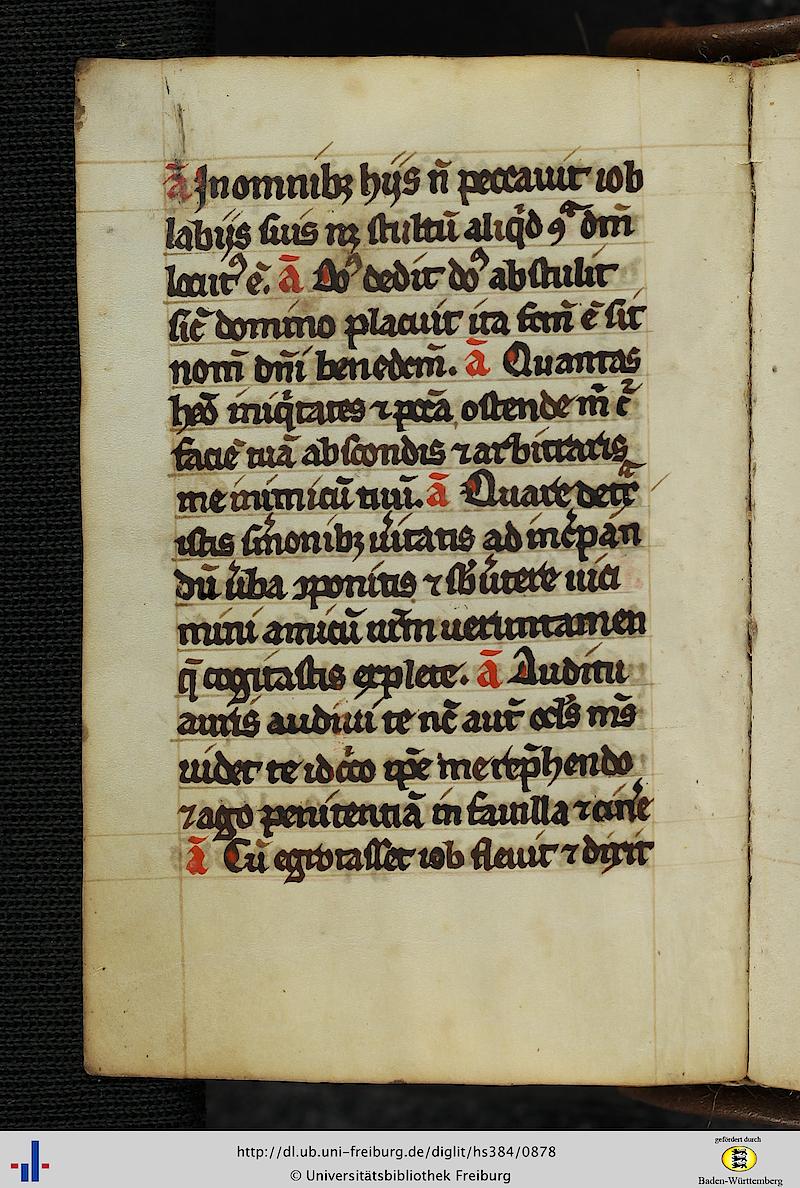 ā In omnibꝫ hijs n̄ peccauit iob
labijs suis nꝫ stultū aliq̇d ꝯᵃ dm̄
locut᷒ ē. ā Do᷒ dedit do᷒ abstulit
sic̄ domino placuit ita fcm̄ ē sit
nom̄ dn̄i benedcm̄. ā Quantas
heō iniq̇tates ⁊ pcc̄a ostende m̄ c̄
faciē tuā abscondis ⁊ arbitraris
me inimicū tuū. ā Quare det̄ᵃ
istis s̄monibꝫ ūitatis ad inc̄pan̄
dū ūba ꝯponitis ⁊ sb̄ūtere niti
mini amicū vr̄m ueruntamen
q̄ cogitastis explete. ā Auditu
auris audiui te nc̄ aut̄ ocl̄s m̄s
uidet te idc̄co ip̄e me rep̄hendo
⁊ ago penitentiā in fauilla ⁊ cin̄e
ā Cū egrotasset iob fleuit ⁊ dixit
http://dl.ub.uni-freiburg.de/diglit/hs384/0878
© Universitätsbibliothek Freiburg
gefördert durch
Baden-Württemberg